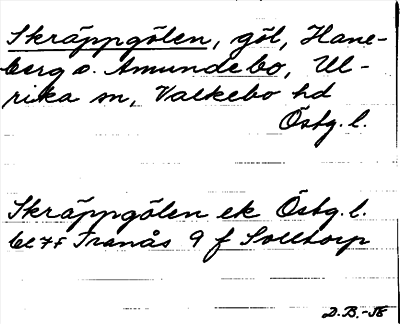 Skräppgölen, göl, Hane-
berg o. Amundebo, Ul-
rika sn, Valkebo hd
Östg. l.
Skräppgölen ek Östg. l.
bl 7f Tranås 9 f Solltorp
D.B.-58